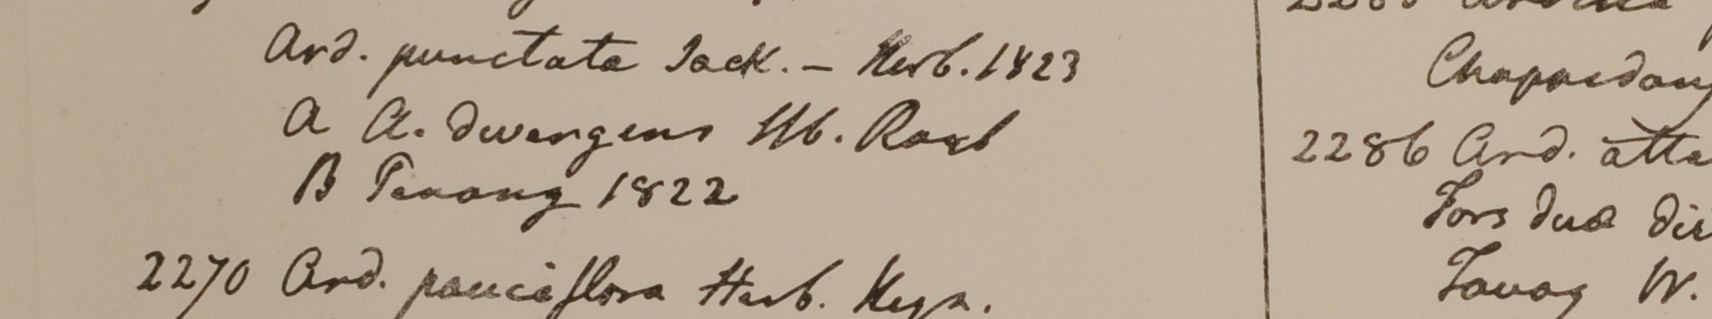 Ard. punctata Jack. – Herb. 1823
A A. divergens Hb. Roxb
B Penang 1822
2270 Ard. pauciflora Herb. Heyn.
2286 Ard. atte
Fors duæ
Tavoy W.